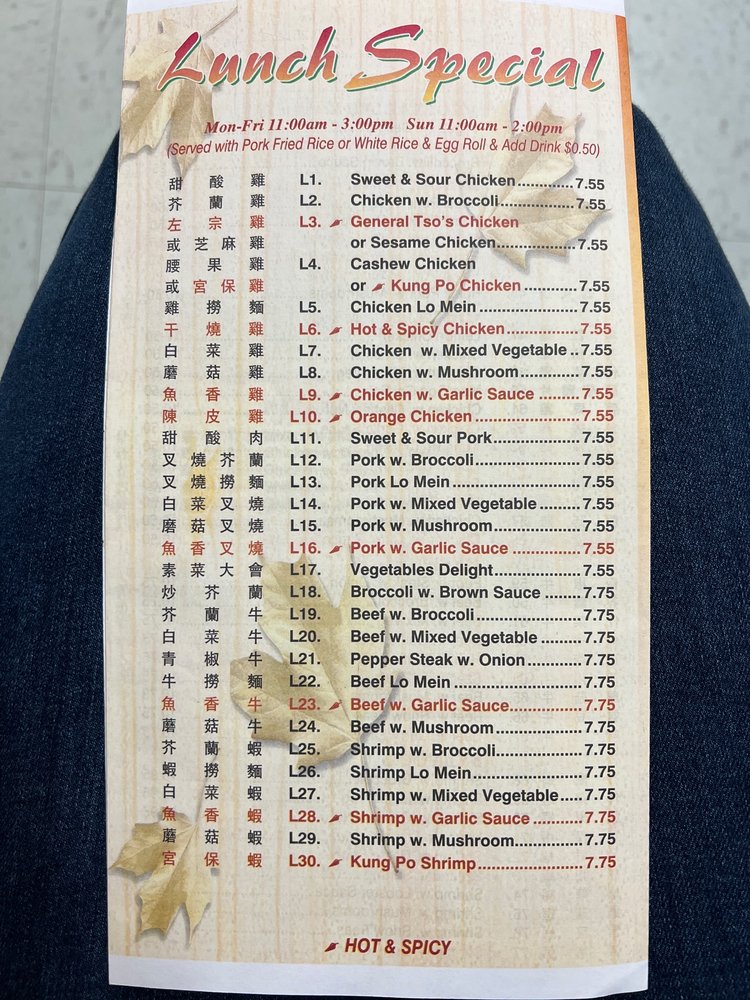 Lunch Special
Mon-Fri 11:00am - 3:00pm Sun 11:00am - 2:00pm
(Served with Pork Fried Rice or White Rice & Egg Roll & Add Drink $0.50)
甜 酸 雞 L1. Sweet & Sour Chicken..............7.55
芥 蘭 雞 L2. Chicken w. Broccoli..................7.55
左 宗 雞 L3. General Tso's Chicken
或 芝 麻 雞 or Sesame Chicken...................7.55
腰 果 雞 L4. Cashew Chicken
或 宮 保 雞 or Kung Po Chicken ............7.55
雞 撈 麵 L5. Chicken Lo Mein .......................7.55
干 燒 雞 L6. Hot & Spicy Chicken.................7.55
白 菜 雞 L7. Chicken w. Mixed Vegetable ..7.55
蘑 菇 雞 L8. Chicken w. Mushroom..............7.55
魚 香 雞 L9. Chicken w. Garlic Sauce .........7.55
陳 皮 雞 L10. Orange Chicken ........................7.55
甜 酸 肉 L11. Sweet & Sour Pork....................7.55
叉 燒 芥 蘭 L12. Pork w. Broccoli........................7.55
叉 燒 撈 麵 L13. Pork Lo Mein .............................7.55
白 菜 叉 燒 L14. Pork w. Mixed Vegetable .........7.55
蘑 菇 叉 燒 L15. Pork w. Mushroom....................7.55
魚 香 叉 燒 L16. Pork w. Garlic Sauce ...............7.55
素 菜 大 會 L17. Vegetables Delight....................7.55
炒 芥 蘭 L18. Broccoli w. Brown Sauce ........7.75
芥 蘭 牛 L19. Beef w. Broccoli........................7.75
白 菜 牛 L20. Beef w. Mixed Vegetable .........7.75
青 椒 牛 L21. Pepper Steak w. Onion ............7.75
牛 撈 麵 L22. Beef Lo Mein .............................7.75
魚 香 牛 L23. Beef w. Garlic Sauce.................7.75
蘑 菇 牛 L24. Beef w. Mushroom....................7.75
芥 蘭 蝦 L25. Shrimp w. Broccoli...................7.75
蝦 撈 麵 L26. Shrimp Lo Mein ........................7.75
白 菜 蝦 L27. Shrimp w. Mixed Vegetable .....7.75
魚 香 蝦 L28. Shrimp w. Garlic Sauce ..........7.75
蘑 菇 蝦 L29. Shrimp w. Mushroom...............7.75
宮 保 蝦 L30. Kung Po Shrimp.......................7.75
HOT & SPICY